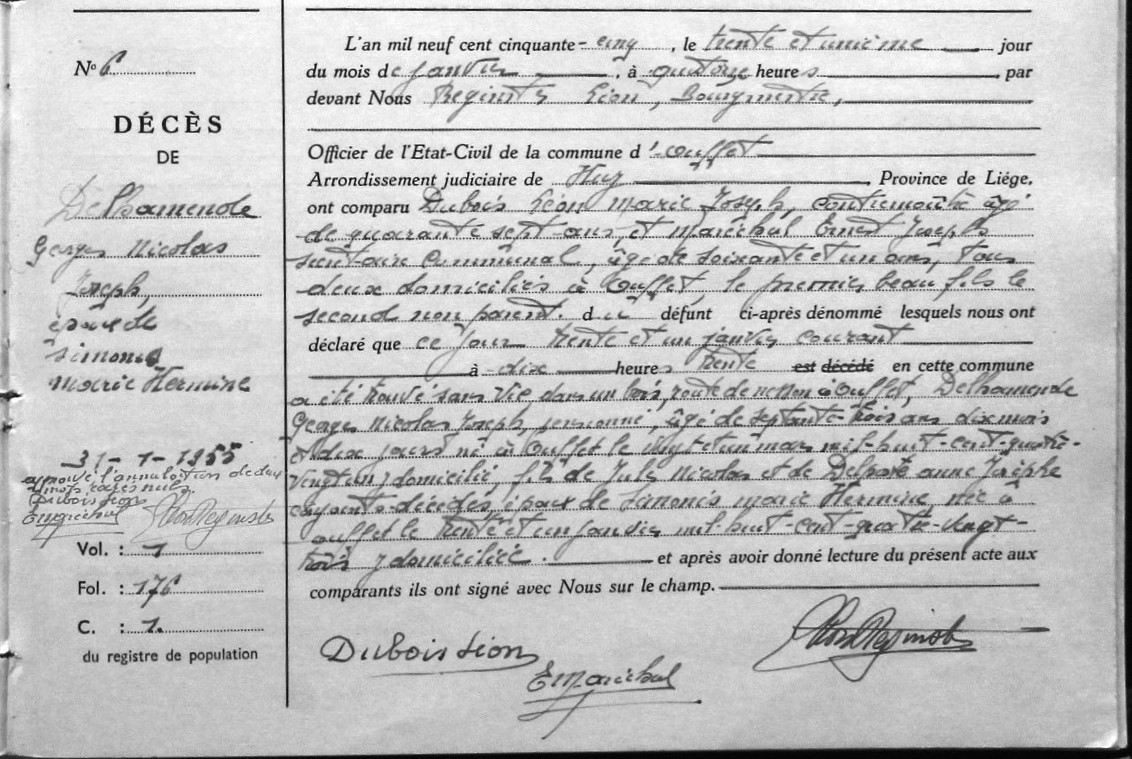 N° 6
DÉCÈS
DE
Delhamende
Georges Nicolas
Joseph,
époux de
Simonis
Marie Hermine
31-1-1955
approuvé l'annulation de deux
mots rayés nuls.
Dubois Léon
EMaréchal
Vol. : 1
Fol. : 176
C. : 1.
du registre de population
L'an mil neuf cent cinquante-cinq, le trente et unième jour
du mois de janvier, à quatorze heures, par
devant Nous Reginster Léon, Bourgmestre,
Officier de l'Etat-Civil de la commune d'Ouffet
Arrondissement judiciaire de Huy, Province de Liége,
ont comparu Dubois Léon Marie Joseph, âgé
de quarante sept ans, et Maréchal Ernest Joseph
secrétaire communal, âgé de soixante et un ans, tous
deux domiciliés à Ouffet, le premier beau fils le
second non parent. du défunt ci-après dénommé lesquels nous ont
déclaré que ce jour trente et un janvier courant
à dix heures trente est décédé en cette commune
a été trouvé sans vie dans un bois, route de à Ouffet, Delhamende
Georges Nicolas Joseph, pensionné, âgé de septante-trois ans dix mois
et dix jours né à Ouffet le vingt et un mars mil huit-cent-quatre-
vingt un y domicilié, fils de Jules Nicolas et de anne Josèphe
conjoints décédés, époux de Simonis Marie Hermine née à
Ouffet le trente et un janvier mil-huit-cent-quatre-vingt-
trois y domiciliée. et après avoir donné lecture du présent acte aux
comparants ils ont signé avec Nous sur le champ.
Dubois Léon
EMaréchal
Léon Reginster